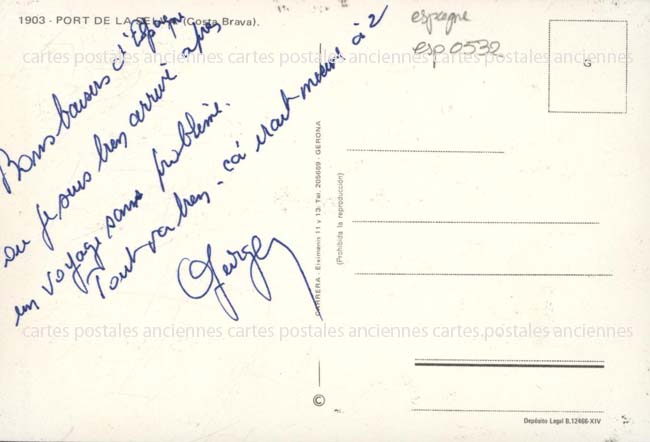 1903 - PORT DE LA SELVA (Costa Brava).
espagne
esp 0532
G
Bons baisers d'Espagne
ou je suis bien arrivé après
un voyage sans problème.
Tout va bien - ça serait mieux à 2
Serge
CARRERA - Eiximenis 11 y 13. Tel. 205689 - GERONA
(Prohibida la reproducción)
©
Depósito Legal B.12466-XIV
cartes postales anciennes cartes postales anciennes cartes postales anciennes
cartes postales anciennes cartes postales anciennes cartes postales anciennes
cartes postales anciennes cartes postales anciennes cartes postales anciennes